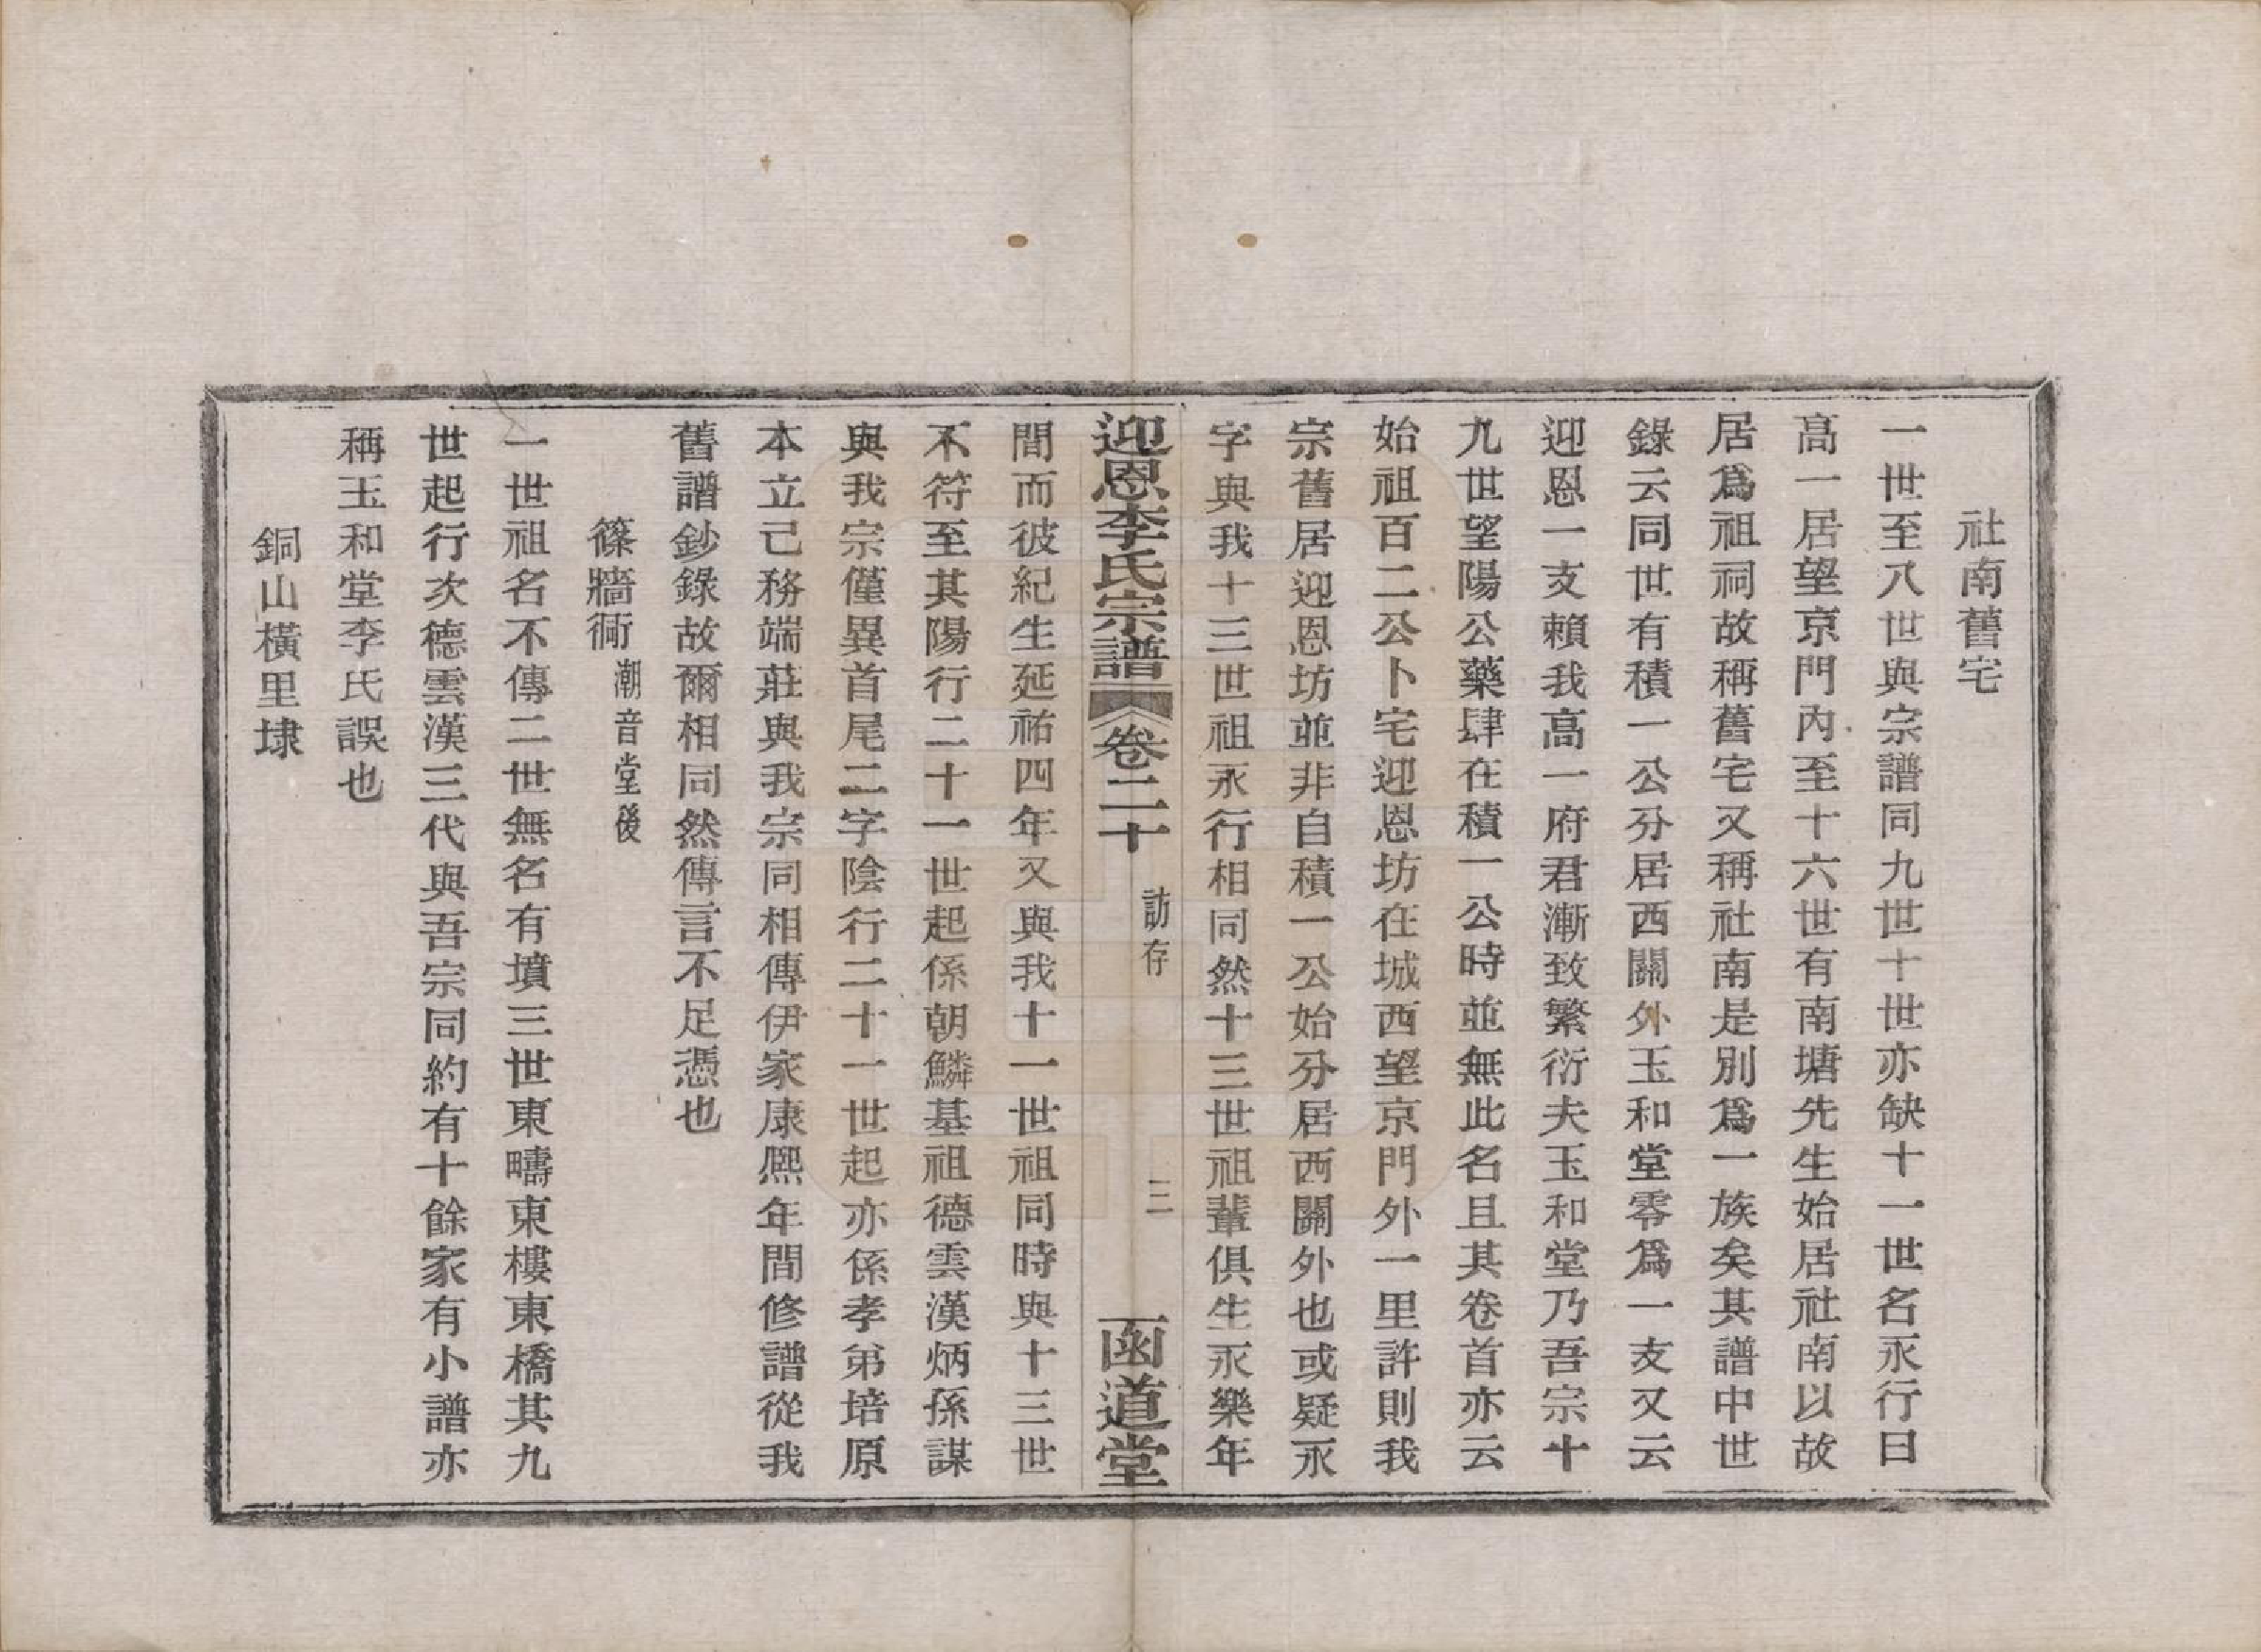 社南舊宅
一世至八世與宗譜同九世十世亦缺十一世名永行曰
高一居望京門內至十六世有南塘先生始居社南以故
居爲祖祠故稱舊宅又稱社南是別爲一族矣其譜中世
錄云同世有積一公分居西關外玉和堂零爲一支又云
迎恩一支賴我高一府君漸致繁衍夫玉和堂乃吾宗十
九世望陽公藥肆在積一公時並無此名且其卷首亦云
始祖百二公卜宅迎恩坊在城西望京門外一里許則我
宗舊居迎恩坊並非自積一公始分居西關外也或疑永
字與我十三世祖永行相同然十三世祖輩俱生永樂年
迎恩李氏宗譜 卷二十 訪存 三 函道堂
間而彼紀生延祐四年又與我十一世祖同時與十三世
不符至其陽行二十一世起係朝鱗基祖德雲漢炳孫謀
與我宗僅異首尾二字陰行二十一世起亦係孝弟培原
本立己務端莊與我宗同相傳伊家康熙年間修譜從我
舊譜鈔錄故爾相同然傳言不足憑也
篠牆衕 潮音堂後
一世祖名不傳二世無名有墳三世東疇東樓東橋其九
世起行次德雲漢三代與吾宗同約有十餘家有小譜亦
稱玉和堂李氏誤也
銅山橫里埭